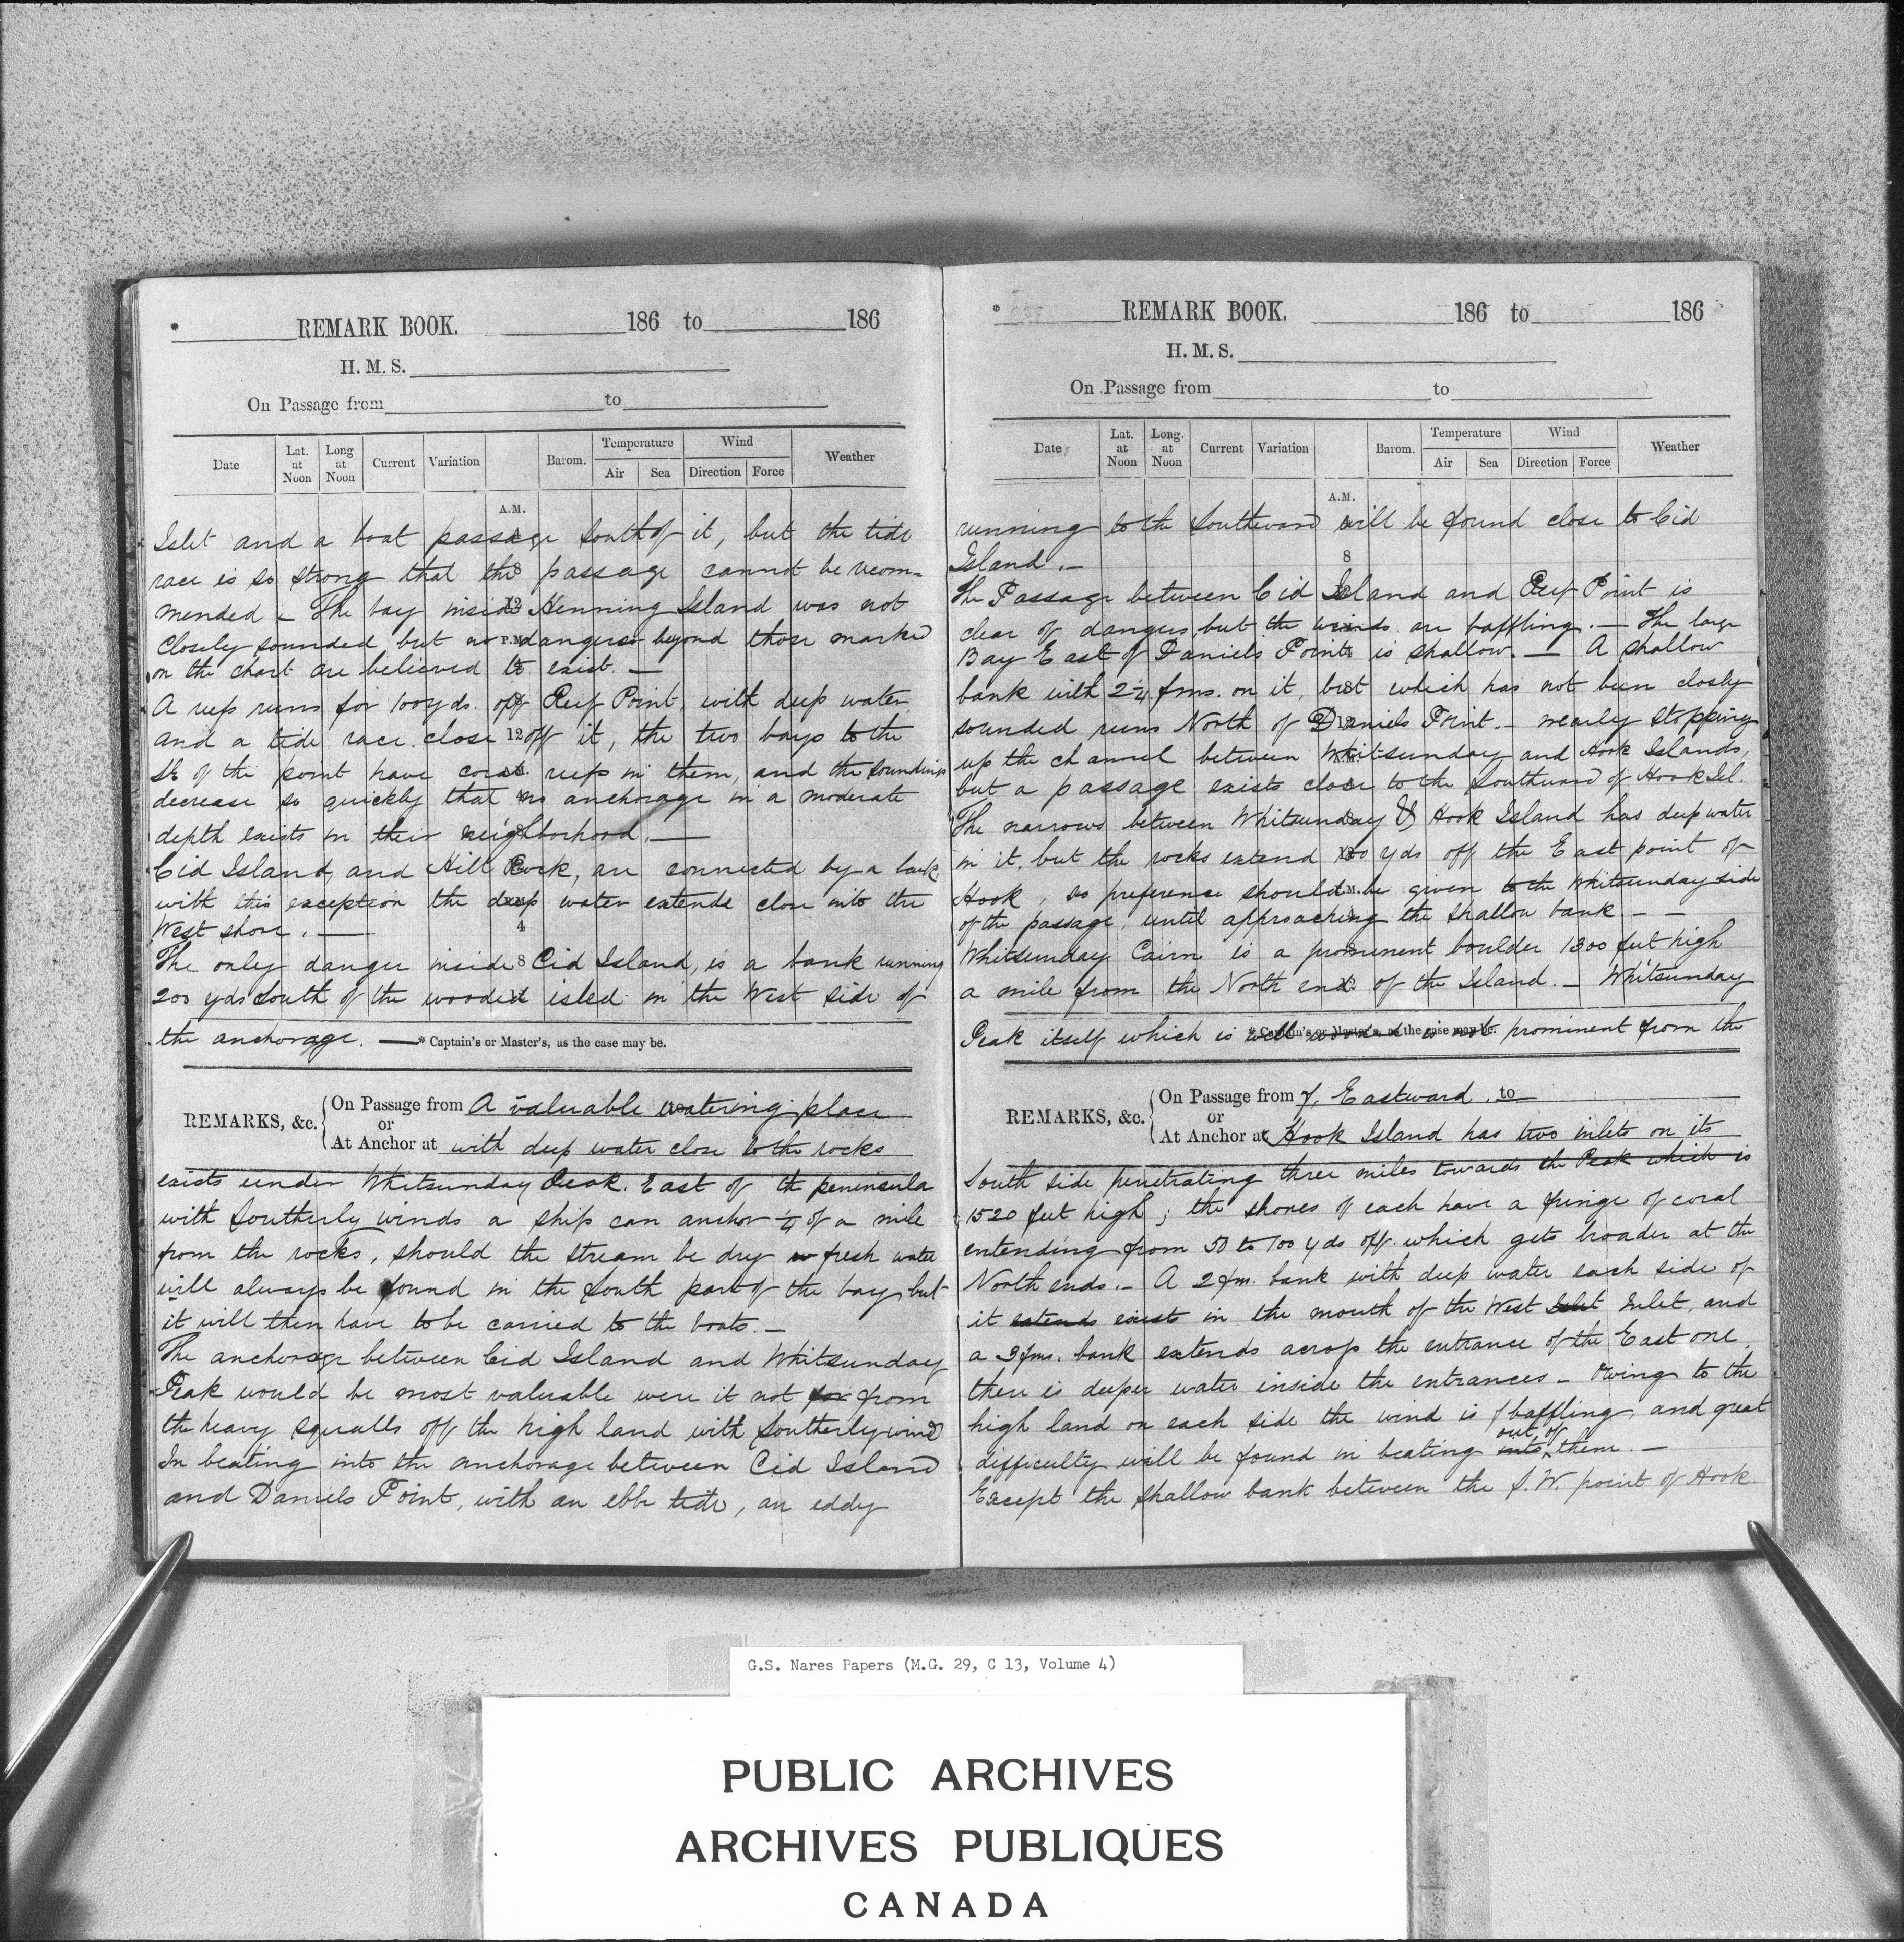 * REMARK BOOK. 186 to 186
H. M. S.
On Passage from to
Date Lat. at Noon Long at Noon Current Variation Barom. Temperature Air Sea Wind Direction Force Weather
A.M.
Islet and a boat passage South of it, but the tide
race is so strong that the passage cannot be recom=
mended – The bay inside Henning Island was not
closely sounded but no dangers beyond those marked
on the chart are believed to exist. —
A reef runs for 100 yds. off Reef Point, with deep water
and a tide race close off it, the two bays to the
SE of the point have coral reefs in them, and the soundings
decrease so quickly that no anchorage in a moderate
depth exists in their neighborhood. —
Cid Island, and Hill Rock, are connected by a bank
with this exception the deep water extends close into the
West shore. —
The only danger inside Cid Island, is a bank running
200 yds South of the wooded islet in the West side of
the anchorage. —
* Captain's or Master's, as the case may be.
REMARKS, &c. On Passage from A valuable watering place
or
At Anchor at with deep water close to the rocks
exists under Whitsunday Peak. East of the peninsula
with Southerly winds a ship can anchor ¼ of a mile
from the rocks, should the stream be dry fresh water
will always be found in the South part of the bay but
it will then have to be carried to the boats. —
The anchorage between Cid Island and Whitsunday
Peak would be most valuable were it not for from
the heavy squalls off the high land with Southerly wind
In beating into the anchorage between Cid Island
and Daniels Point, with an ebb tide, an eddy
* REMARK BOOK. 186 to 186
H. M. S.
On Passage from to
Date Lat. at Noon Long. at Noon Current Variation Barom. Temperature Air Sea Wind Direction Force Weather
A.M.
running to the Southward will be found close to Cid
Island. –
The Passage between Cid Island and Reef Point is
clear of dangers, but the winds are baffling. — The large
Bay East of Daniels Point is shallow. — A shallow
bank with 2¼ fms. on it, but which has not been closely
sounded runs North of Daniels Point. – nearly stopping
up the channel between Whitsunday and Hook Islands,
but a passage exists close to the Southward of Hook Isl.
The narrows between Whitsunday & Hook Island has deep water
in it, but the rocks extend yds off the East point of
Hook, so preference should be given to the Whitsunday side
of the passage, until approaching the shallow bank – –
Whitsunday Cairn is a prominent boulder 1300 feet high
a mile from the North end of the Island. – Whitsunday
Peak itself which is well wooded is not prominent from the
* Captain's or Master's, as the case may be.
REMARKS, &c. On Passage from Eastward. to
or
At Anchor at Hook Island has two inlets on its
South side penetrating three miles towards the Peak which is
1520 feet high; the shores of each have a fringe of coral
extending from 50 to 100 yds off. which gets broader at the
North ends. – A 2 fm. bank with deep water each side of
it extends exists in the mouth of the West Islet Inlet, and
a 3 fms. bank extends across the entrance of the East one,
there is deeper water inside the entrances – Owing to the
high land on each side the wind is baffling, and great
difficulty will be found in beating into out of them. —
Except the shallow bank between the S.W. point of Hook
G.S. Nares Papers (M.G. 29, C 13, Volume 4)
PUBLIC ARCHIVES
ARCHIVES PUBLIQUES
CANADA